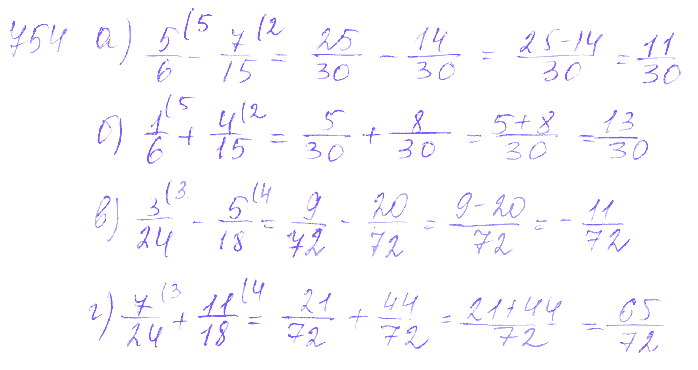 754 а) 5/6 (5 - 7/15 (2 = 25/30 - 14/30 = 25-14/30 = 11/30
б) 1/6 (5 + 4/15 (2 = 5/30 + 8/30 = 5+8/30 = 13/30
в) 3/24 (3 - 5/18 (4 = 9/72 - 20/72 = 9-20/72 = - 11/72
г) 7/24 (3 + 11/18 (4 = 21/72 + 44/72 = 21+44/72 = 65/72